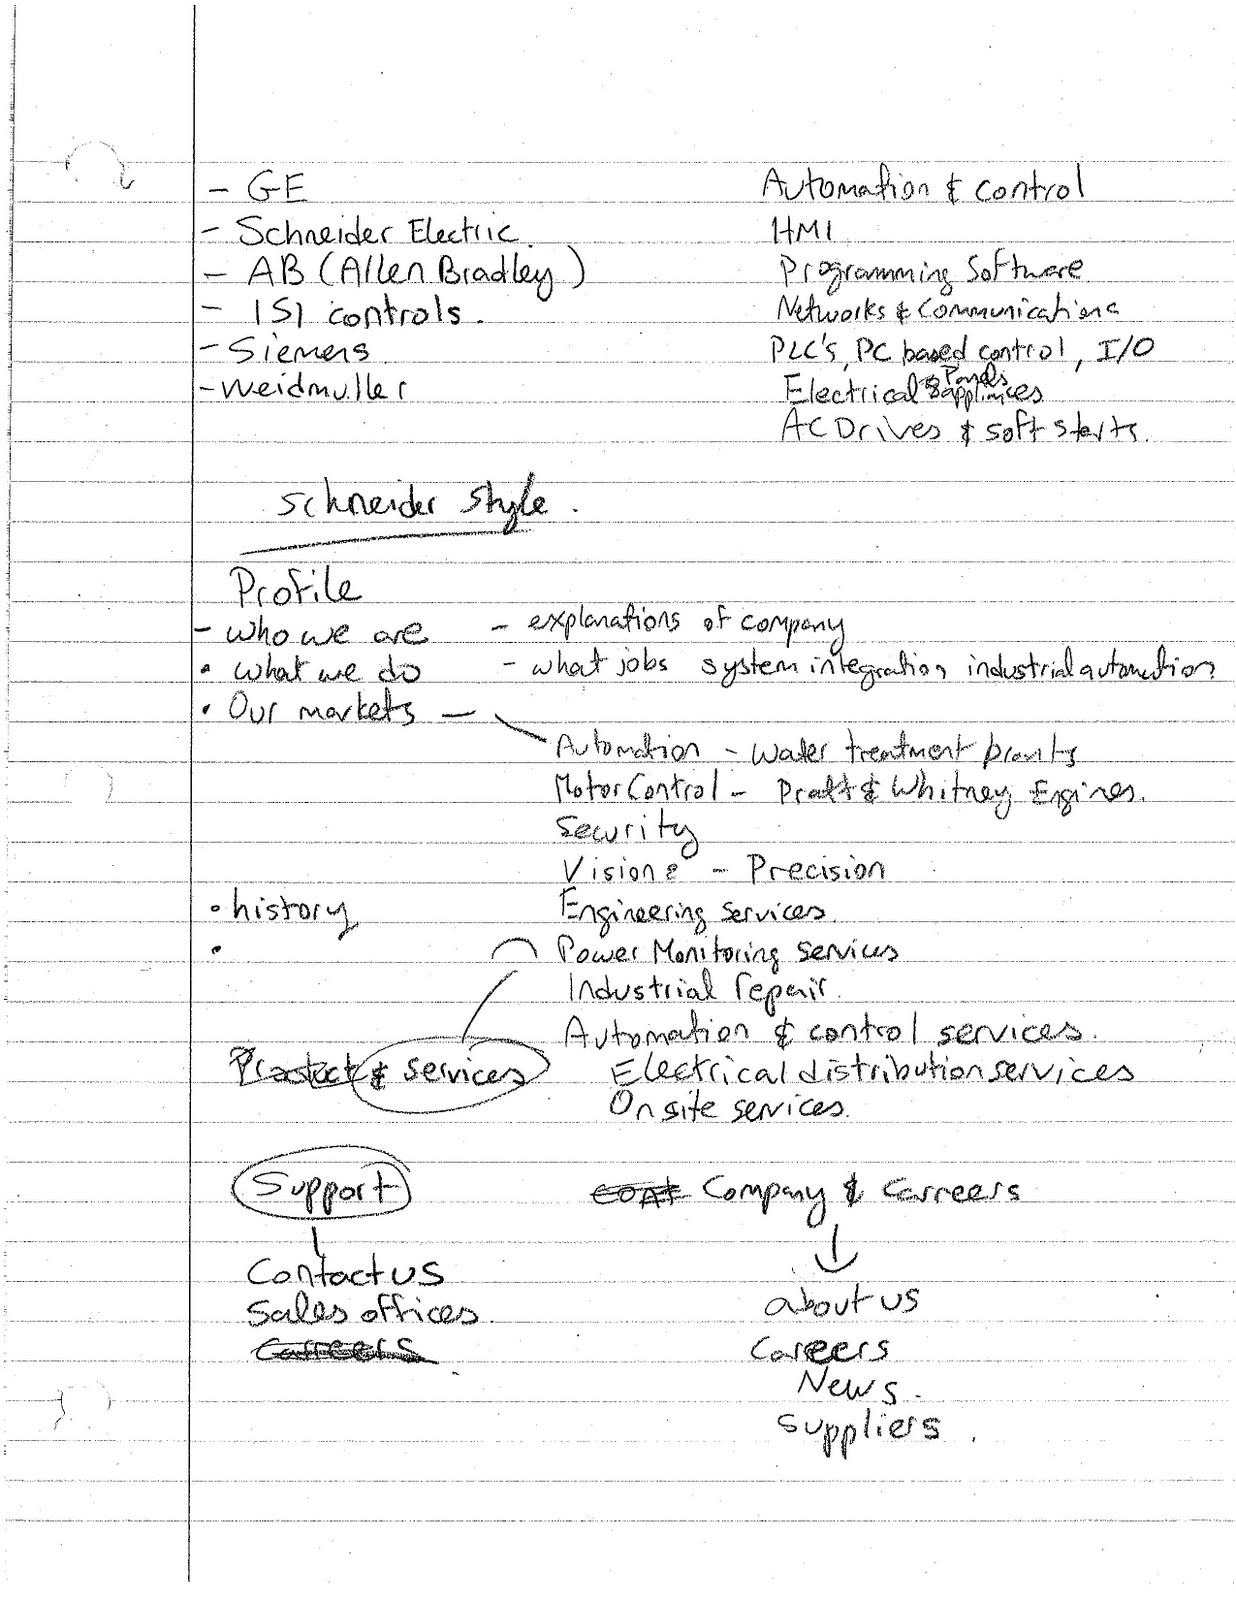 - GE
Automation & control
- Schneider Electric.
HMI
- AB (Allen Bradley)
Programming Software
- ISI controls.
Networks & Communications
- Siemens
PLC's, PC based control, I/O
- Weidmuller
Electrical & Panels
& appliances
AC Drives & soft starts.
Schneider Style.
Profile
- who we are - explanations of company
• what we do - what jobs system integration, industrial automation
• Our markets -
Automation - water treatment plants
Motor Control - Pratt & Whitney Engines.
Security
Vision - Precision
• history
Engineering services.
•
Power Monitoring services
Industrial repair.
Automation & control services.
Product & services
Electrical distribution services
On site services.
Support
Company & Carreers
Contact us
Sales offices.
Carreers
about us
Careers
News.
Suppliers.